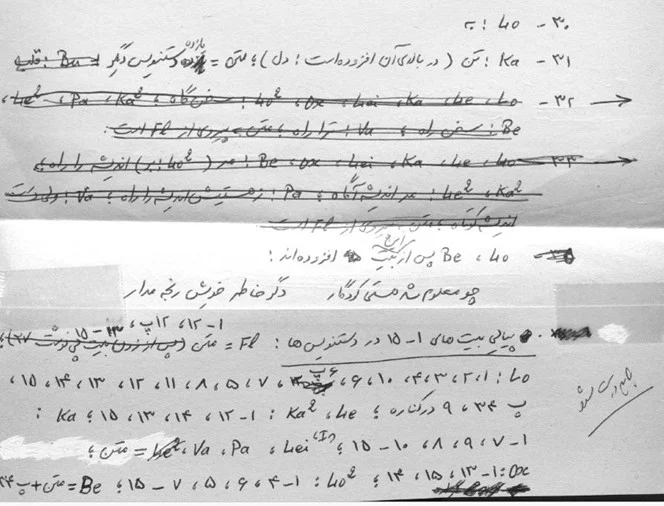 ۳۰- Lo: به
۳۱- Ka: تن (در بالای آن افزوده است: دل)؛ متن = یازده دستنویس دیگر
۳۲- Lo، Le، Ka، Lei، Ox، Lo²: سخن گاه؛ Ka²، Pa، Le²،
Be: سخن راه؛ Va: ترا راه؛ متن به پیروی از Fl است.
۳۳- Lo، Le، Ka، Lei، Ox، Be: مر (Lo²: بر) اندیشه را راه؛
Ka²، Le²: مر اندیشه آگاه؛ Pa: ز هستیش اندیشه را راه؛ Va:
اندیشه کوتاه؛ متن به پیروی از Fl است
Lo، Be پس از این بیت افزوده‌اند:
چو معلوم شد هستی کردگار دگر خاطر خویش رنجه مدار
۱-۱۲، ۱۲پ، ۱۳-۱۵
پیاپی بیت های ۱-۱۵ در دستنویس ها: Fl = متن
Lo: ۱، ۲، ۳، ۴، ۱۰، ۶، ۶پ، ۷، ۵، ۸، ۱۱، ۱۲، ۱۳، ۱۴، ۱۵،
پ ۳۴، ۹ در کناره؛ Le، Ka²: ۱-۱۲، ۱۴، ۱۳، ۱۵؛ Ka:
۱-۷، ۹، ۸، ۱۰-۱۵؛ Lei، Pa، Va، = متن؛
Ox: ۱-۱۳، ۱۵، ۱۴؛ Lo²: ۱-۴، ۶، ۵، ۷-۱۵؛ Be = متن + پ ۳۴